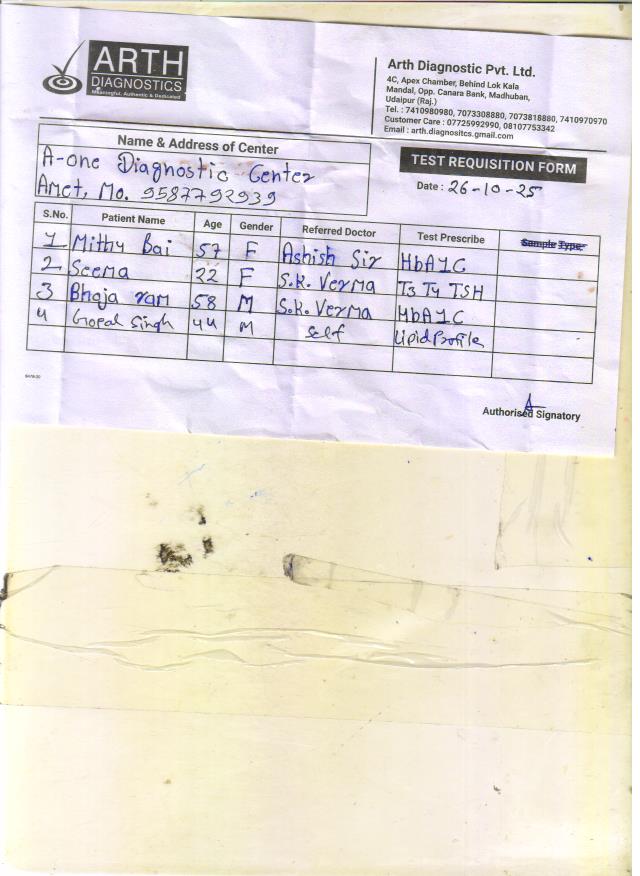 ARTH
DIAGNOSTICS
Meaningful, Authentic & Dedicated
Arth Diagnostic Pvt. Ltd.
4C, Apex Chamber, Behind Lok Kala
Mandal, Opp. Canara Bank, Madhuban,
Udaipur (Raj.)
Tel. : 7410980980, 7073308880, 7073818880, 7410970970
Customer Care : 07725992990, 08107753342
Email : arth.diagnositcs.gmail.com
Name & Address of Center
A-one Diagnostic Center
Amet, Mo. 9587792939
TEST REQUISITION FORM
Date : 26-10-25
S.No. Patient Name Age Gender Referred Doctor Test Prescribe Sample Type
1 Mithu Bai 57 F Ashish Sir HbA1C
2 Seema 22 F S.K. Verma T3 T4 TSH
3 Bhaja ram 58 M S.K. Verma HbA1C
4 Gopal Singh 44 M Self Lipid Profile
Authorised Signatory